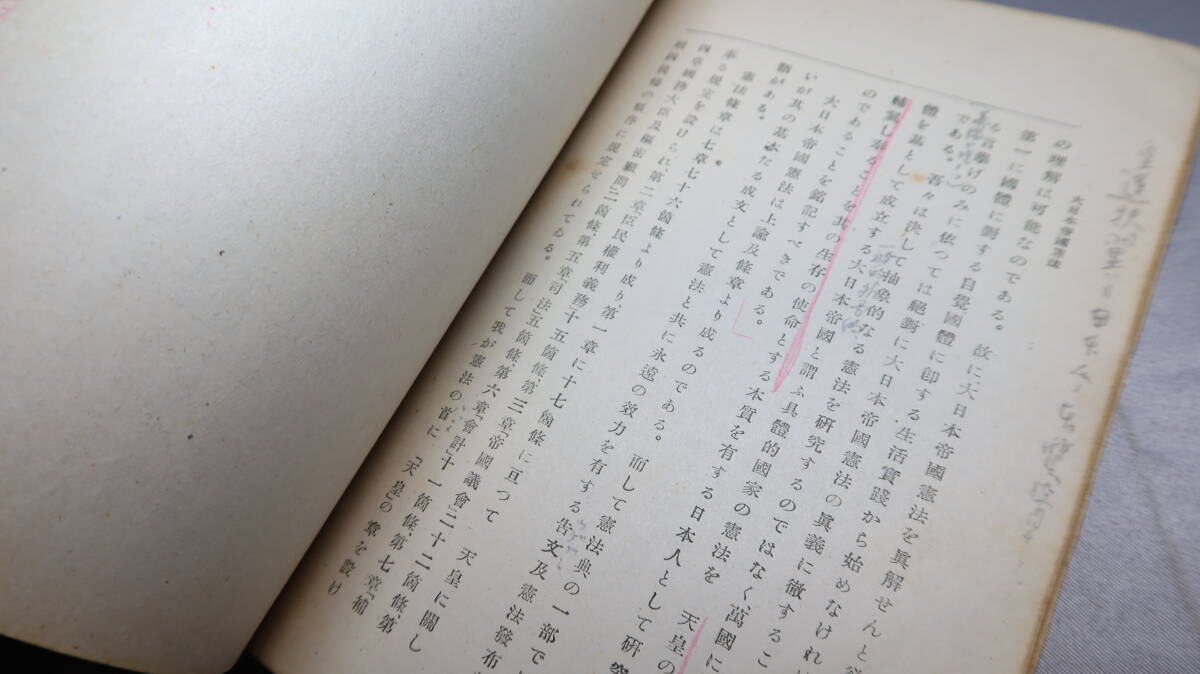 大日本帝國憲法
の理解は可能なのである。故に、大日本帝國憲法を眞解せんと
第一に國體に對する自覺國體に卽する生活實踐から始めなけれは
る言擧げのみに依つては絕對に大日本帝國憲法の眞義に徹するこ
である。吾々は決して抽象的なる憲法を研究するのではなく、萬國に
體を基として成立する大日本帝國と謂ふ具體的國家の憲法を 天皇の
補翼し奉ることを其の生存の使命とする本質を有する日本人として研究
のであることを銘記すべきである。
大日本帝國憲法は上諭及條章より成るのである。而して憲法典の一部で
いが其の基本たる成文として憲法と共に永遠の效力を有する告文及憲法發布
類がある。
憲法條章は七章七十六箇條より成り、第一章に十七箇條に亘つて 天皇に關し
る規定を設けられ、第二章「臣民權利義務」十五箇條、第三章「帝國議會」二十二箇條、第
四章「國務大臣及樞密顧問」二箇條、第五章「司法」五箇條、第六章「會計」十一箇條、第七章「補
則」四箇條の順序に規定せられてゐる。而して我が憲法の首に「天皇」の章を設け